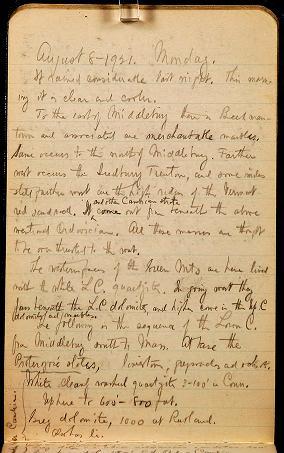 August 8-1921. Monday.
It rained considerable last night. This morn-
ing it is clear and cooler.
To the east of Middlebury there is Beekman-
town and associated are merchantable marbles.
Same occurs to the north of Middlebury. Farther
west occurs the Trenton, and some miles
still farther west are the high ridges of the Vermont
red sandrock. It and the Cambrian slate come out from beneath the above
Ordovician. All these masses are thought
to be overthrusted to the west.
The western faces of the Green Mts are here lined
with the white L.C. quartzite. In going west they
pass beneath the L.C. dolomite, and higher come in the Up C
dolomites and
The following is the sequence of the Lower C.
from Middlebury south to Mass. At base the
Proterozoic slates, limestone,
White clean washed quartzite 2-100' in Conn.
Up here to 600'- 800 feet.
Grey dolomite, 1000 at Rutland.